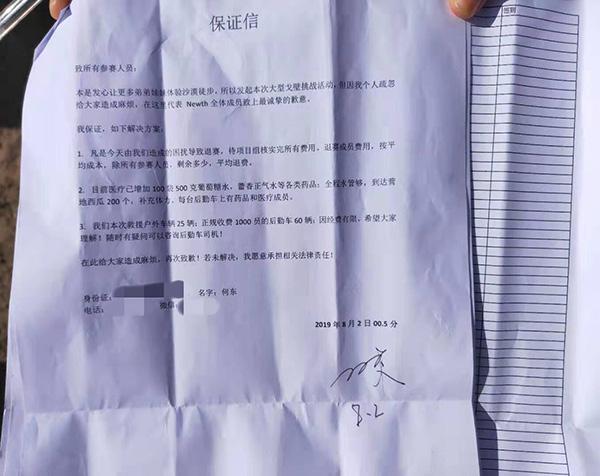 保证信
签到
致所有参赛人员:
本是发心让更多弟弟妹妹体验沙漠徒步,所以发起本次大型戈壁挑战活动,但因我个人疏忽
给大家造成麻烦,在这里代表 Newth 全体成员致上最诚挚的歉意。
我保证,如下解决方案,
1、凡是今天由我们造成的困扰导致退赛,待项目组核实完所有费用,退赛成员费用,按平
均成本,除所有参赛人员,剩余多少,平均退费。
2、目前医疗已增加 100 袋 500 克葡萄糖水,藿香正气水等各类药品;全程水管够,到达营
地西瓜 200 个;补充体力,每台后勤车上有药品和医疗成员。
3、我们本次救援户外车辆 25 辆;正规收费 1000 员的后勤车 60 辆;因经费有限,希望大家
理解!随时有疑问可以咨询后勤车司机!
在此给大家造成麻烦,再次致歉!若未解决,我愿意承担相关法律责任!
身份证: 名字:何东
电话: 微信
2019 年 8 月 2 日 00.5 分
8-2